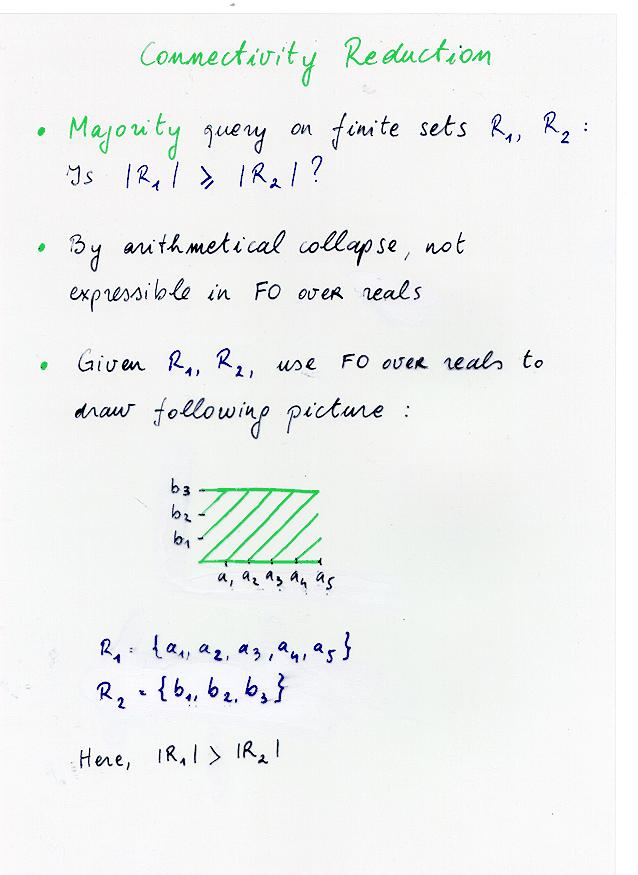 Connectivity Reduction
• Majority query on finite sets R₁, R₂ :
Is |R₁| ⩾ |R₂| ?
• By arithmetical collapse, not
expressible in FO over reals
• Given R₁, R₂, use FO over reals to
draw following picture :
b₃
b₂
b₁
a₁ a₂ a₃ a₄ a₅
R₁ = {a₁, a₂, a₃, a₄, a₅}
R₂ = {b₁, b₂, b₃}
Here, |R₁| > |R₂|